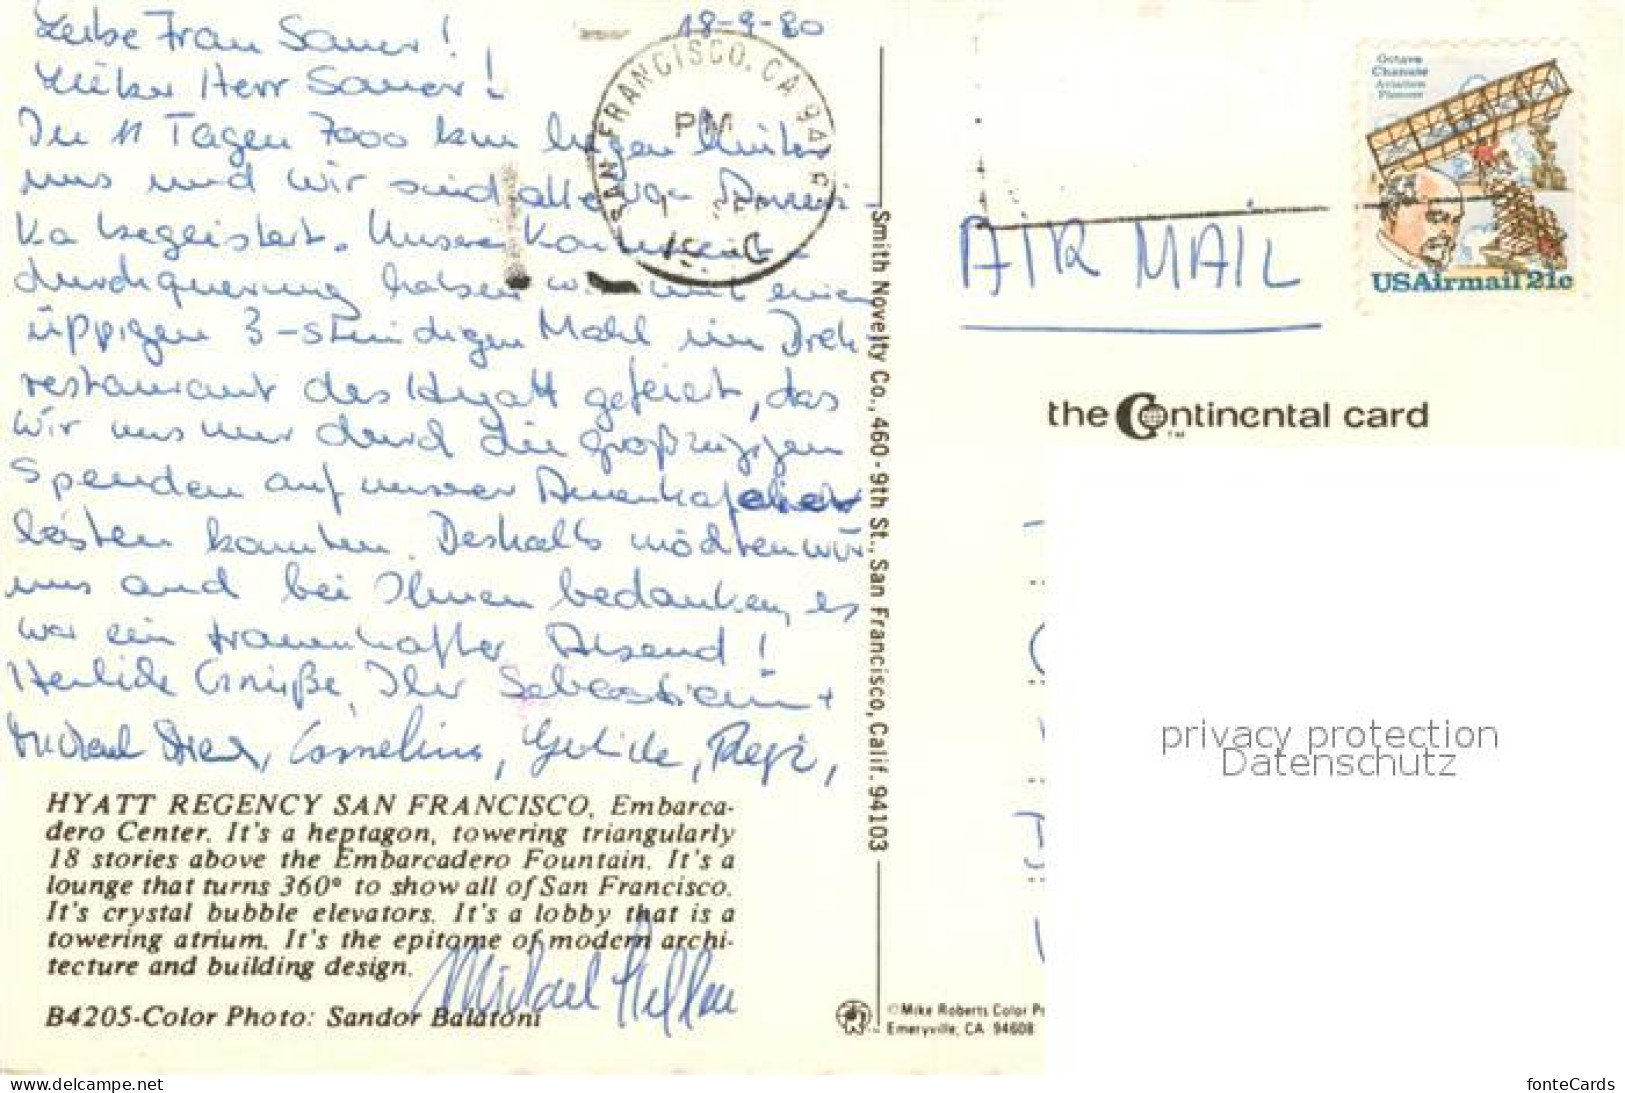 18-9-80
Liebe Frau Sauer!
Lieber Herr Sauer!
In 11 Tagen 7000 km liegen hinter
uns und wir sind alle von Ameri-
ka begeistert. Unsere Kontinent-
durchquerung haben wir mit einem
üppigen 3-stündigen Mahl im Dreh-
restaurant des Hyatt gefeiert, das
wir uns nur durch die großzügigen
Spenden auf unserer
leisten konnten. Deshalb möchten wir
uns auch bei Ihnen bedanken, es
war ein traumhafter Abend!
Herzliche Grüße, Ihr Sebastian +
Michael, Cornelius, Regi,
Michael
HYATT REGENCY SAN FRANCISCO, Embarca-
dero Center. It's a heptagon, towering triangularly
18 stories above the Embarcadero Fountain. It's a
lounge that turns 360° to show all of San Francisco.
It's crystal bubble elevators. It's a lobby that is a
towering atrium. It's the epitome of modern archi-
tecture and building design.
B4205-Color Photo: Sandor Balatoni
SAN FRANCISCO, CA
PM
Smith Novelty Co., 460-9th St., San Francisco, Calif. 94103
©Mike Roberts Color
Emeryville, CA 94608
AIR MAIL
Octave
Chanute
Aviation
Pioneer
USAirmail 21c
the Continental card
TM
privacy protection
Datenschutz
www.delcampe.net
fonteCards